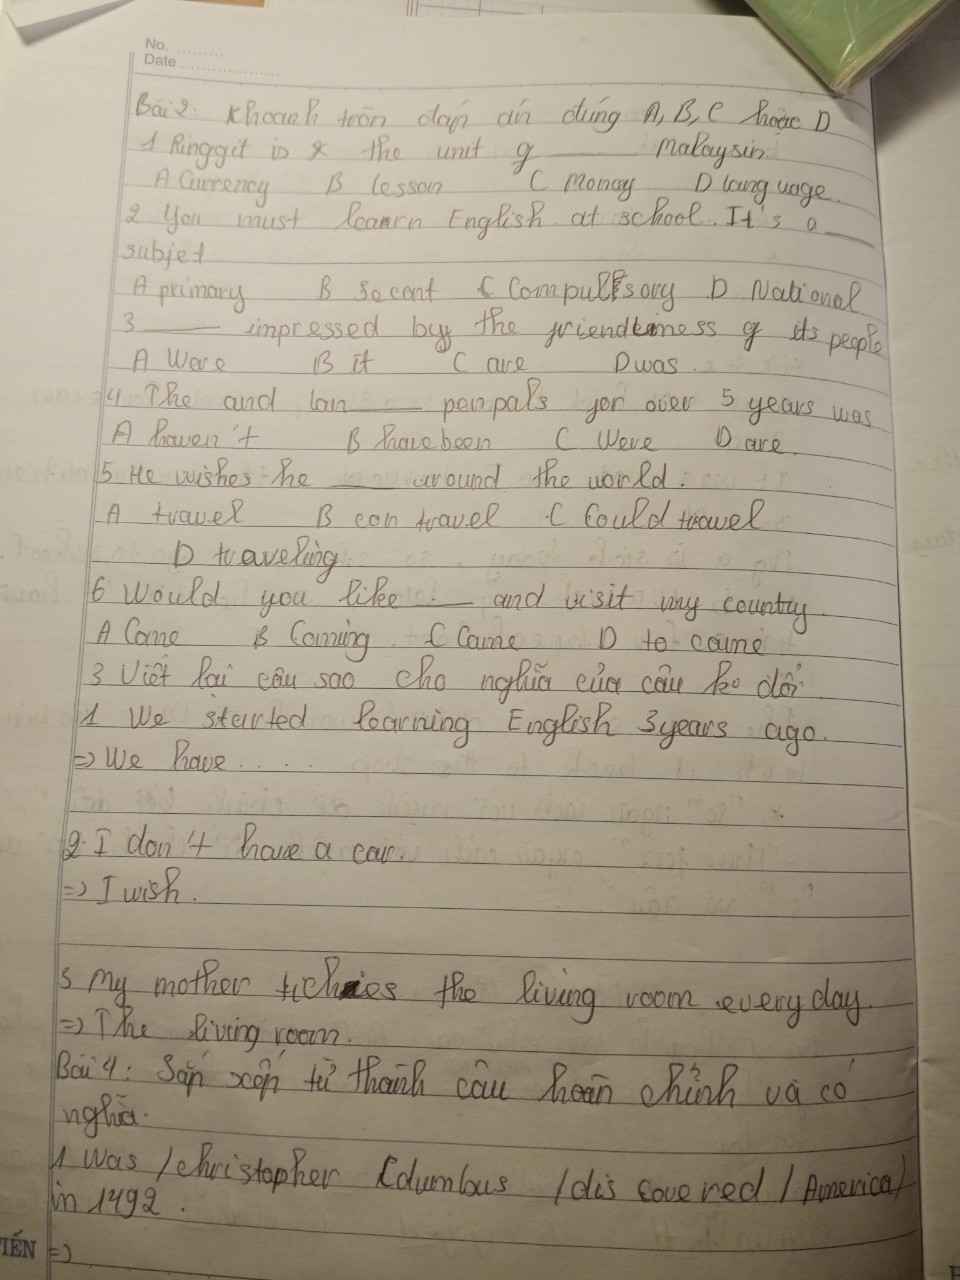 No. ..........
Date ....................
Bài 2: Khoanh tròn đáp án đúng A, B, C hoặc D
1 Ringgit is the unit of ____ Malaysia.
A Currency B lesson C Monay D language.
2 You must learn English at school. It's a ____
subjet
A primary B Secont C Compulsory D National
3 ____ impressed by the friendliness of its people
A Were B it C are D was.
4 The and lan ____ penpals for over 5 years was
A haven't B have been C Were D are.
5 He wishes he ____ around the world.
A travel B can travel C Could travel
D traveling
6 Would you like ____ and visit my country
A Come B Coming C Came D to came
3 Viết lại câu sao cho nghĩa của câu ko đổi
1 We started learning English 3 years ago.
=> We have ....
2. I don't have a car.
=> I wish.
3 My mother the living room everyday.
=> The living room.
Bài 4: Sắp xếp từ thành câu hoàn chỉnh và có
nghĩa.
1 Was / christopher Columbus / discovered / America /
in 1492.
TIẾN =>